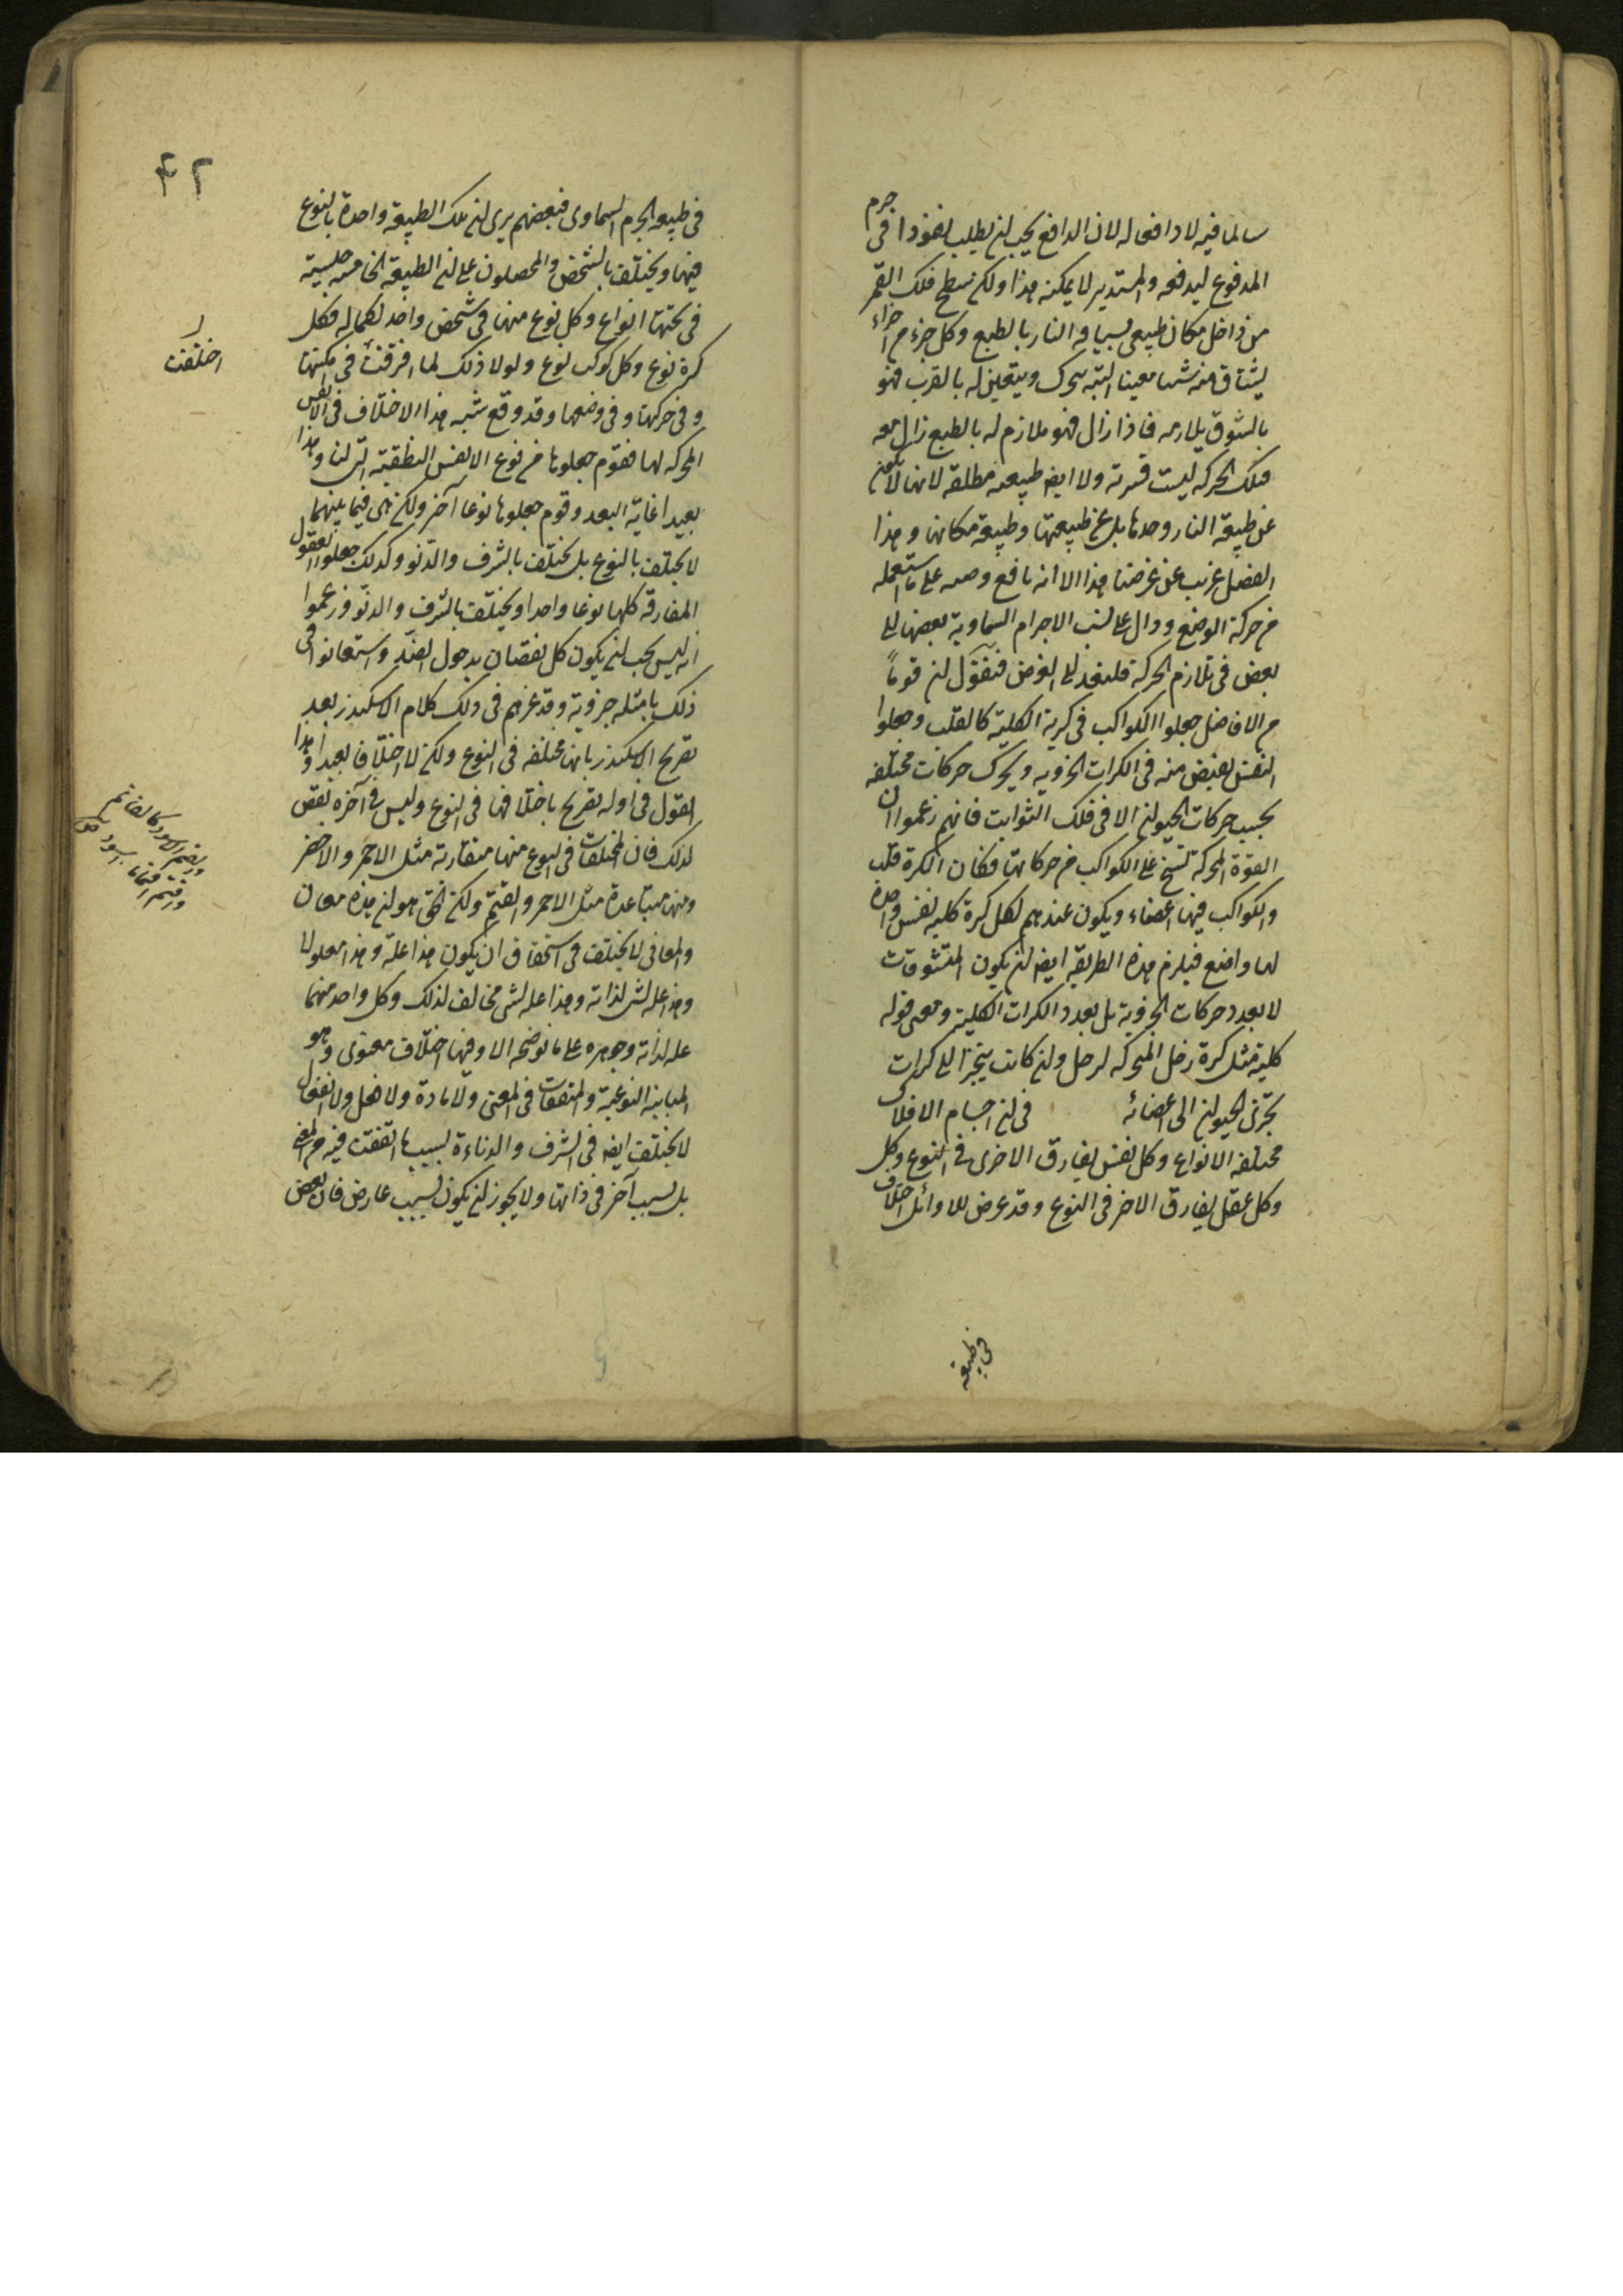 سالما فيه لا دافعا له لان الدافع يجب ان يطلب نفوذا فى جرم
المدفوع ليدفعه والمستدير لا يمكنه هذا ولكن سطح فلك القمر
من داخل مكان طبيعى يسياقه النار بالطبع وكل جزء من اجزاء
يشتاق منه شيئا معينا البتة يتحرك ويتعين له بالقرب فهو
بالشوق يلازمه فاذا زال فهو ملازم له بالطبع زال معه
فتلك الحركة ليست قسرية ولا ايضا طبيعية مطلقة لانها لا تكون
عن طبيعة النار وحدها بل عن طبيعتها وطبيعة مكانها وهذا
الفصل غريب عن غرضنا هذا الا انه نافع وصمه على ما نستعمله
من حركة الوضع ودال على نسب الاجرام السماوية بعضها الى
بعض فى تلازم الحركة فلنعد الى الغرض فنقول ان قوما
من الافاضل جعلوا الكواكب فى كرية الكلية كالقلب وجعلوا
النفس يفيض منه فى الكرات الجزوية ويحرك حركات مختلفة
بحسب حركات الحيوان الا فى فلك الثوابت فانهم زعموا ان
القوة المحركة تسنح على الكواكب من حركاتها فكان الكرة قلب
والكواكب فيها اعضاء ويكون عندهم لكل كرة كلية نفس واحدة
لها واضع فيلزم هذه الطريقة ايضا ان يكون المتشوقات
لا بعدد حركات الجزوية بل بعدد الكرات الكلية ومعنى قوله
كلية مثل كرة زحل المحركة لزحل وان كانت يتجزأ الى كرات
تجزئ الحيوان الى اعضائه فى ان اجسام الافلاك
مختلفة الانواع وكل نفس يفارق الاخرى فى النوع وكل
وكل عقل يفارق الاخر فى النوع وقد عرض للاوائل اختلاف
فى طبيعة
۴۲
فى طبيعة الجرم السماوى فبعضهم يرى ان تلك الطبيعة واحدة بالنوع
فيها ويختلف بالشخص والمحصلون على ان الطبيعة الخامسة جنسية
فى تحتها انواع وكل نوع منها فى شخص واحد لكماله فكل
كرة نوع وكل كوكب نوع ولولا ذلك لما افترقت فى امكنتها
اختلفت
وفى حركتها وفى وضعها وقد وقع شبه هذا الاختلاف فى الانفس
المحركة لها فقوم جعلوها من نوع الانفس النطقية التى لنا وهذا
بعيدا غاية البعد وقوم جعلوها نوعا آخر ولكن هى فيما بينهما
لا يختلف بالنوع بل يختلف بالشرف والدنو وكذلك جعلوا العقول
المفارقة كلها نوعا واحدا ويختلف بالشرف والدنو وزعموا
انه ليس يجب ان يكون كل نقصان بدخول الضد واستعانوا فى
ذلك بامثلة جزوية وقد غرهم فى ذلك كلام الاسكندر بعد
تصريح الاسكندر بانها مختلفة فى النوع ولكن لا اختلافا بعيدا وهذا
القول فى اوله تصريح باختلافها فى النوع وليس فى آخره نقض
لذلك فان المختلفات فى النوع منها متقاربة مثل الاحمر والاخضر
ومنها متباعدة مثل الاحمر والقتم ولكن الحق هو ان هذه معان
والمعانى لا يختلف فى استحقاق ان يكون هذا علة وهذا معلولا
وهذا علة لشئ لذاته وهذا علة لشئ مخالف لذلك وكل واحد منهما
علة لذاته وجوهره على ما نوضحه الا وفيها اختلاف معنوى وهو
المباينة النوعية والمتفقات فى المعنى ولا مادة ولا فعل ولا انفعال
لا يختلف ايضا فى الشرف والدناءة بسبب ما اتفقت فيه من المعنى
بل بسبب آخر فى ذاتها ولا يجوز ان يكون بسبب عارض فان بعض